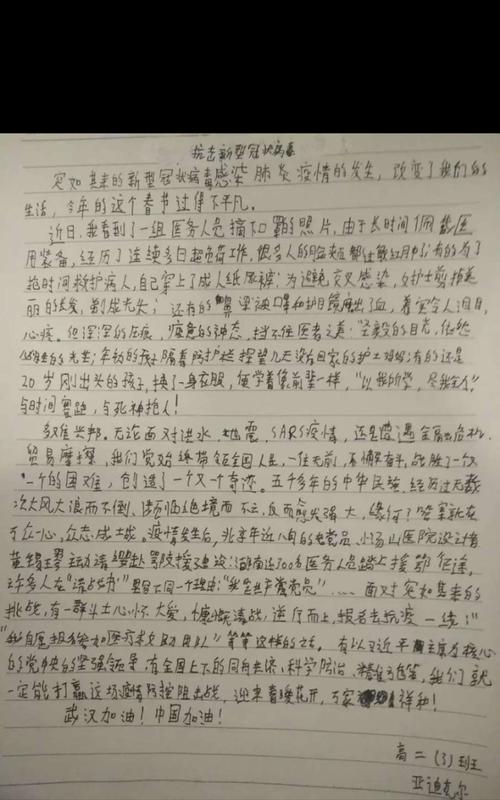 抗击新型冠状病毒
突如其来的新型冠状病毒感染肺炎疫情的发生，改变了我们的
生活，今年的这个春节过得不平凡。
近日，我看到了一组医务人员摘下口罩的照片，由于长时间佩戴医
用装备，经历了连续多日超负荷工作，很多人的脸颊都让勒红了；有的为了
抢时间救护病人，自己穿上了成人纸尿裤；为避免交叉感染，女护士剪掉美
丽的长发，剃成光头；还有的鼻梁被口罩和护目镜磨出了血，看完令人泪目，
心疼。但深深的压痕，疲惫的神态，挡不住医者之美：坚毅的目光，
年幼的孩子隔着防护栏探望几天没有回家的护士妈妈；有的还是
20岁刚出头的孩子，换了一身衣服，便学着像前辈一样，“以我所学，尽我全人”，
与时间赛跑，与死神抢人！
多难兴邦。无论面对洪水、地震、SARS疫情，还是遭遇金融危机、
贸易摩擦，我们党始终带领全国人民，一往无前，不惧艰辛，战胜了一个又
一个的困难，创造了一个又一个奇迹。五千多年的中华民族，经历过无数
次大风大浪而不倒、涉历绝境而不亡，反而愈发强大，缘何？答案就在
万众一心，众志成城。疫情发生后，北京年近八旬的老党员、小汤山医院设计者
黄锡璆主动请缨赴鄂院援建设；湖南近500名医务人员踏上援鄂征途，
许多人在“请战书”里写下同一个理由：“我是共产党员”……面对突如其来的
挑战，有一群斗士心怀大爱，慷慨请战，逆行而上，报名去抗疫一线；“
我自愿报名参加医疗救助队”等等这样的话。有以习近平主席为核心
的党中央的坚强领导，有全国上下的同舟共济、科学防治、精准施策，我们就
一定能打赢这场疫情防控阻击战，迎来春暖花开，万家祥和！
武汉加油！中国加油！
高二（3）班
亚迪克尔